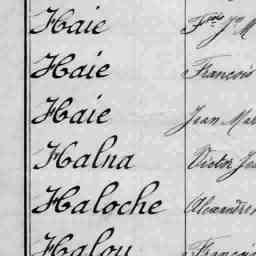 Haie Fois Jn M
Haie François
Haie Jean Mar
Halna Victor Je
Haloche Alexandre
Halou François